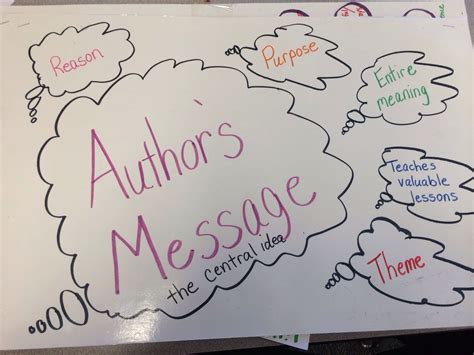 Reason
Purpose
Entire
meaning
Author's
Message
the central idea
Teaches
valuable
lessons
Theme